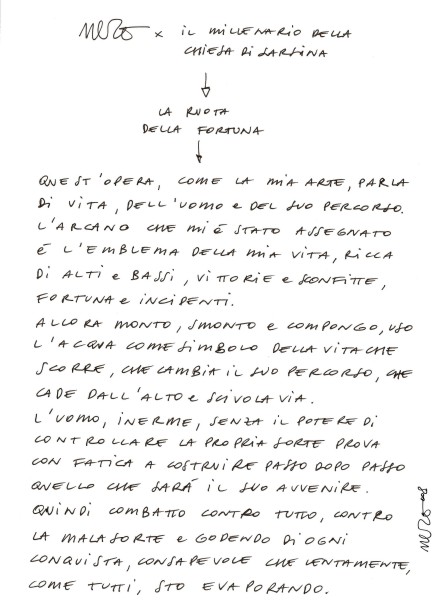 x IL MILLENARIO DELLA
CHIESA DI SARSINA
LA RUOTA
DELLA FORTUNA
QUEST'OPERA, COME LA MIA ARTE, PARLA
DI VITA, DELL'UOMO e DEL SUO PERCORSO.
L'ARCANO CHE MI É STATO ASSEGNATO
É L'EMBLEMA DELLA MIA VITA, RICCA
DI ALTI e BASSI, VITTORIE e SCONFITTE,
FORTUNA e INCIDENTI.
ALLORA MONTO, SMONTO e COMPONGO, USO
L'ACQUA COME SIMBOLO DELLA VITA CHE
SCORRE, CHE CAMBIA IL SUO PERCORSO, CHE
CADE DALL'ALTO e SCIVOLA VIA.
L'UOMO, INERME, SENZA IL POTERE DI
CONTROLLARE LA PROPRIA SORTE PROVA
CON FATICA A COSTRUIRE PASSO DOPO PASSO
QUELLO CHE SARÁ IL SUO AVVENIRE.
QUINDI COMBATTO CONTRO TUTTO, CONTRO
LA MALASORTE e GODENDO DI OGNI
CONQUISTA, CONSAPEVOLE CHE LENTAMENTE,
COME TUTTI, STO EVAPORANDO.